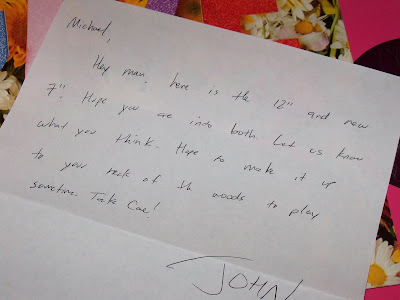 Michael,
Hey man, here is the 12" and new
7". Hope you are into both. Let us know
what you think. Hope to make it up
to your neck of th woods to play
sometime. Take Care!
JOHN